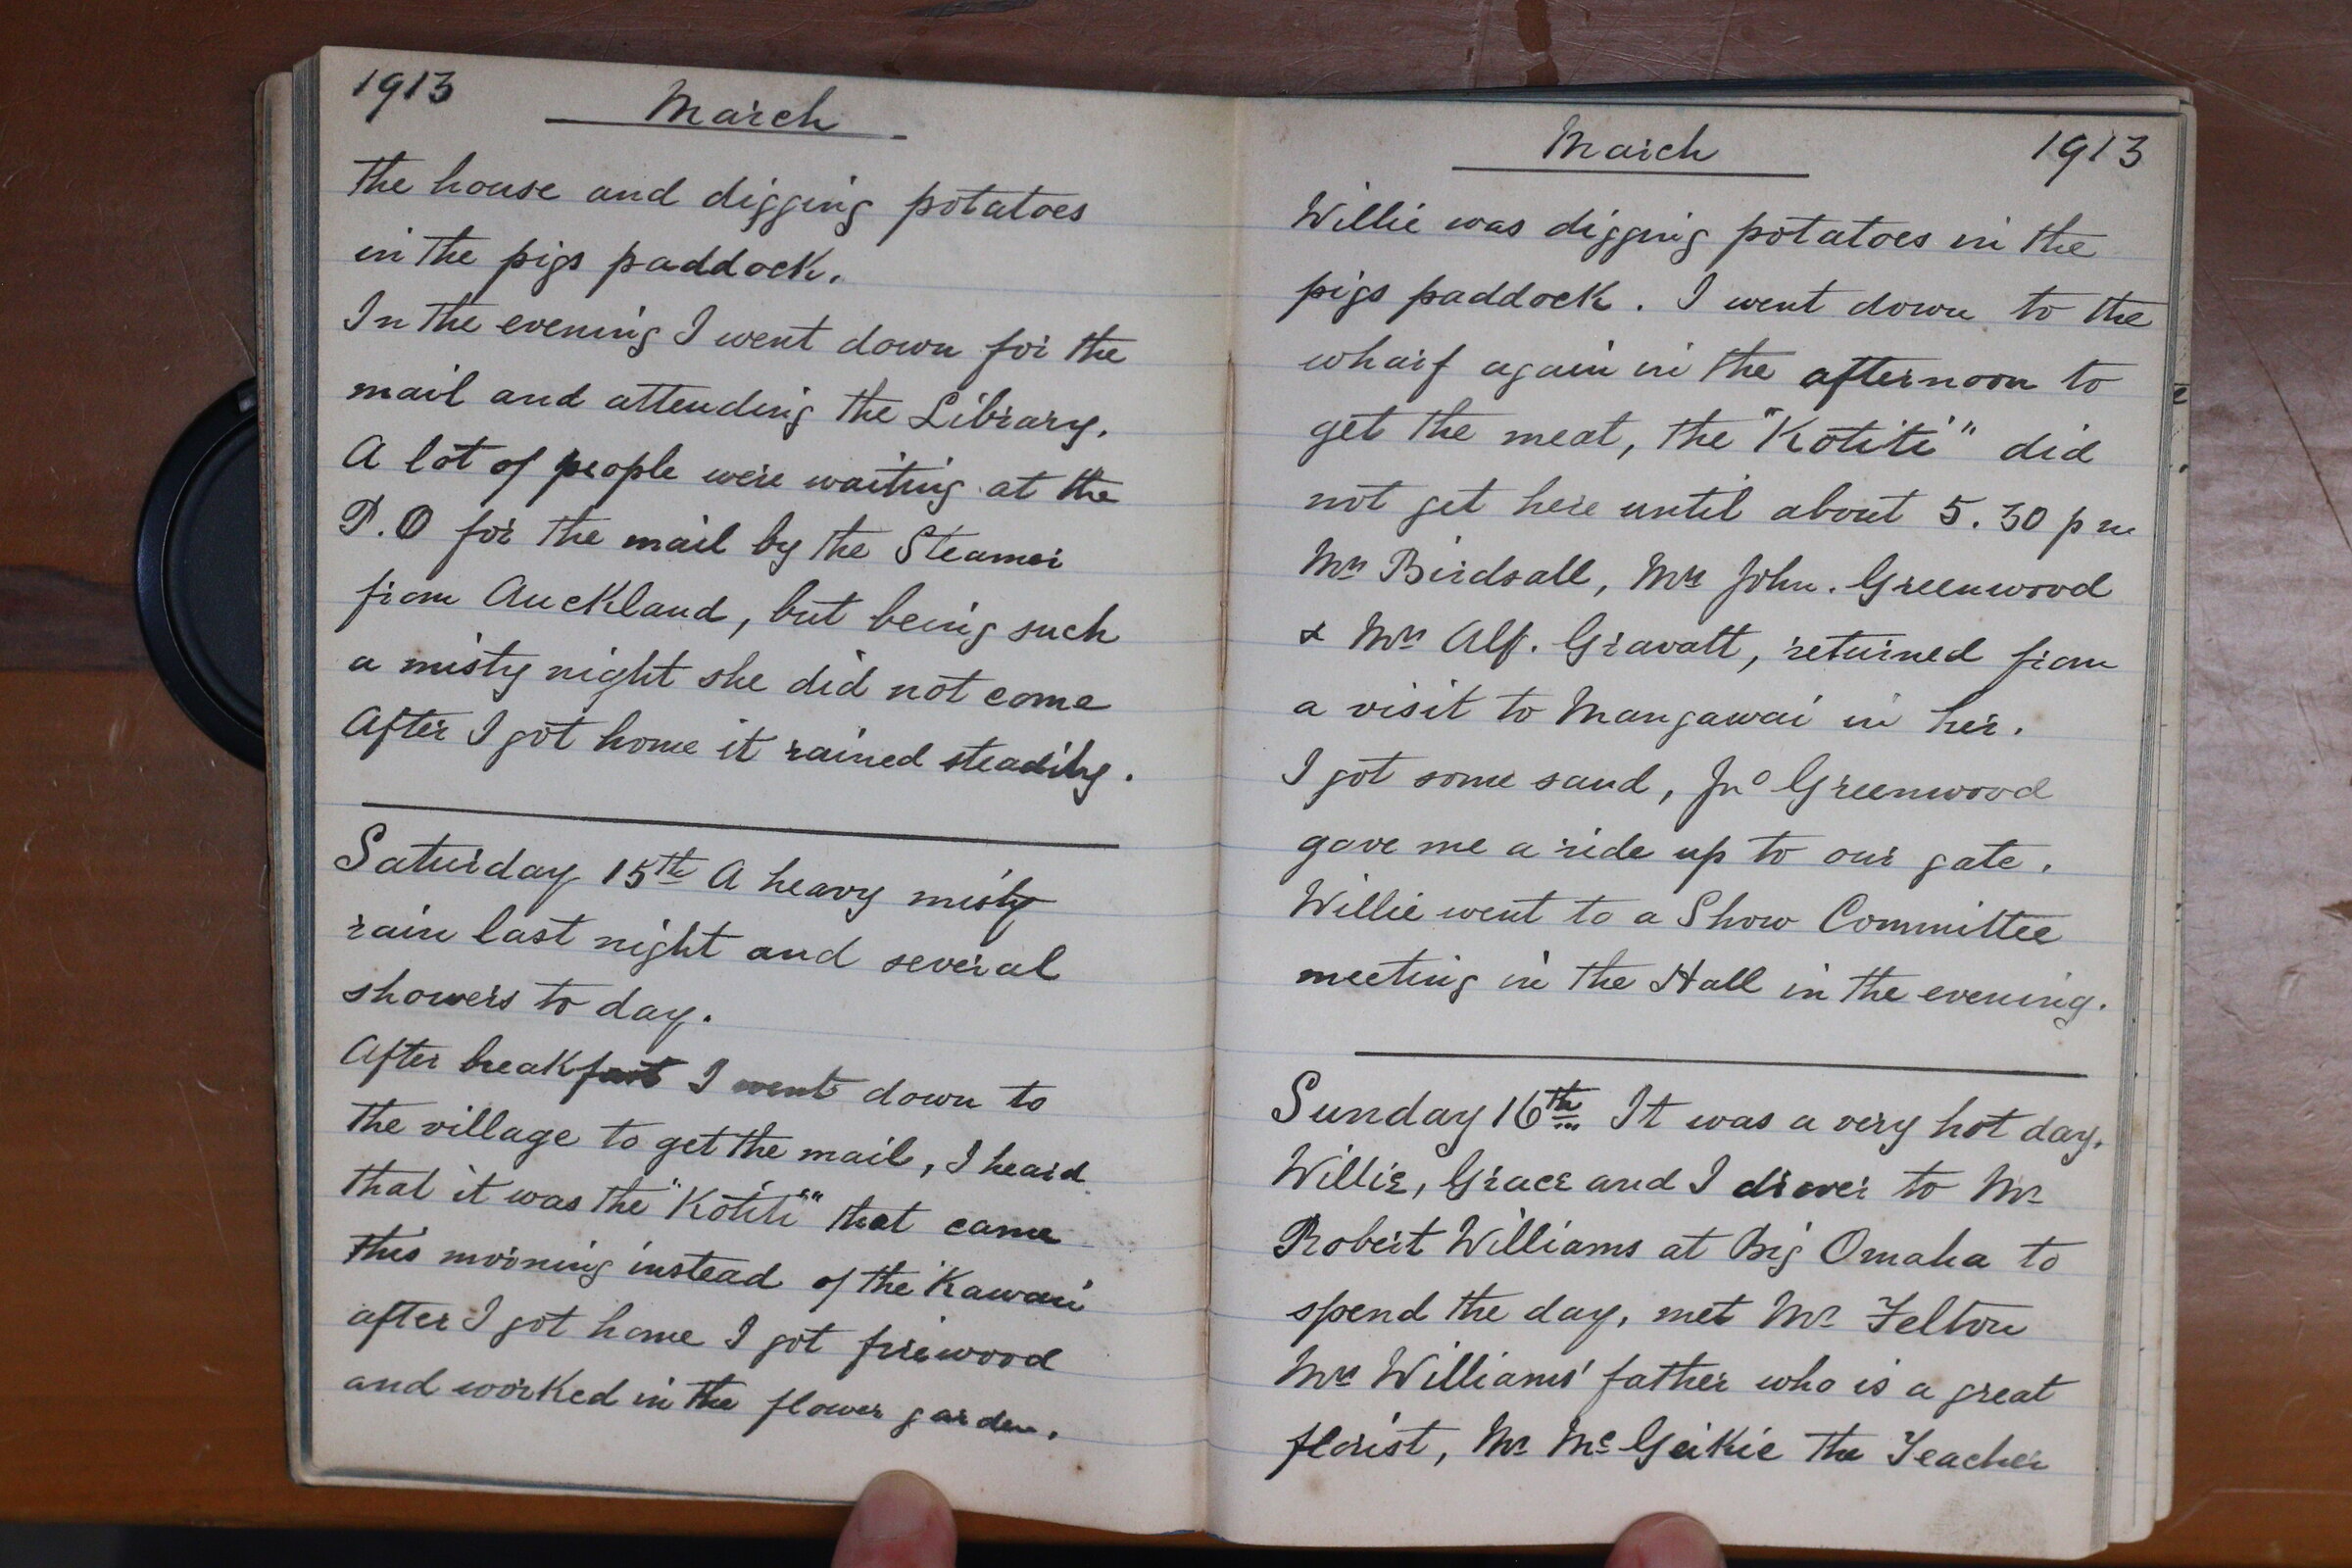 1913
March
the house and digging potatoes
in the pigs paddock.
In the evening I went down for the
mail and attending the Library.
A lot of people were waiting at the
P.O for the mail by the Steamer
from Auckland, but being such
a misty night she did not come
After I got home it rained steadily.
Saturday 15th A heavy misty
rain last night and several
showers to day.
After breakfast I went down to
the village to get the mail, I heard
that it was the "Kotiti" that came
this morning instead of the "Kawau"
after I got home I got firewood
and worked in the flower garden.
March 1913
Willie was digging potatoes in the
pigs paddock. I went down to the
wharf again in the afternoon to
get the meat, the "Kotiti" did
not get here until about 5.30 pm
Mrs Birdsall, Mrs John. Greenwood
& Mrs Alf. Gravatt, returned from
a visit to Mangawai in her.
I got some sand, Jno Greenwood
gave me a ride up to our gate.
Willie went to a Show Committee
meeting in the Hall in the evening.
Sunday 16th It was a very hot day.
Willie, Grace and I to Mr
Robert Williams at Big Omaha to
spend the day, met Mr Felton
Mrs Williams' father who is a great
florist, Mr McGeikie the Teacher